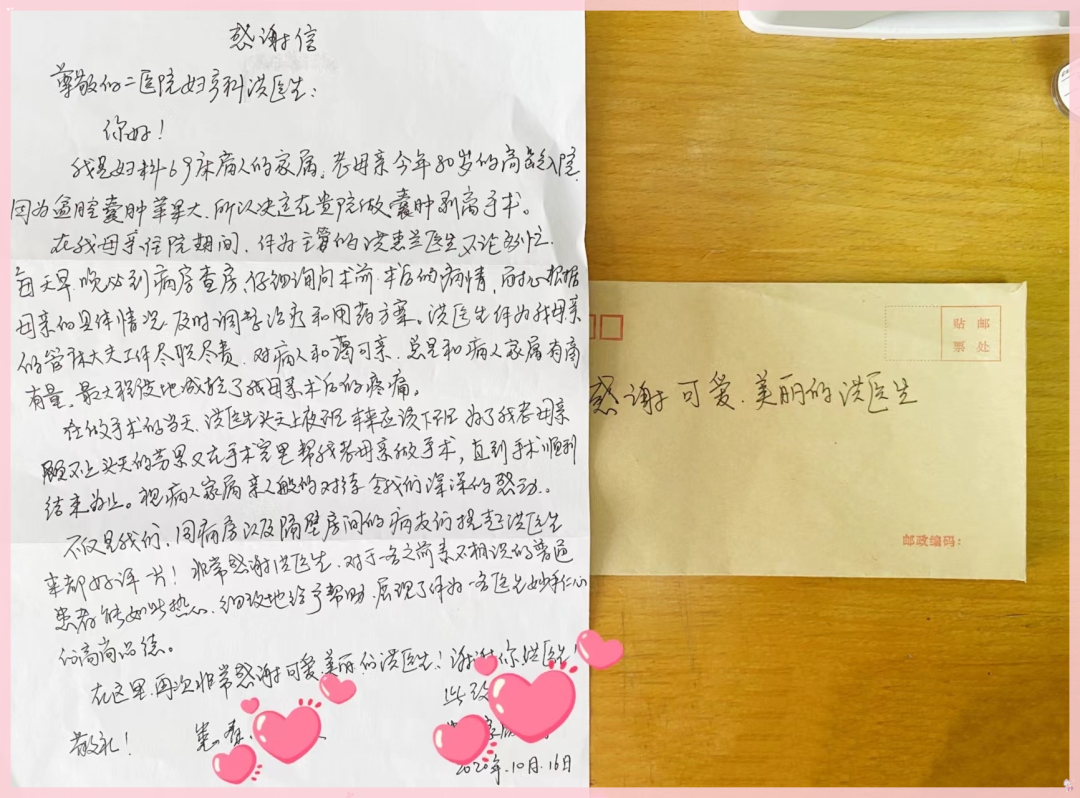 感谢信
尊敬的二医院妇产科洪医生：
你好！
我是妇科69床病人的家属。老母亲今年80岁的高龄入院，
因为盆腔囊肿苹果大，所以决定在贵院做囊肿剥离手术。
在我母亲住院期间，作为主管的洪惠兰医生无论多忙，
每天早、晚必到病房查房，仔细询问术前、术后的病情，耐心根据
母亲的具体情况及时调整治疗和用药方案。洪医生作为我母亲
的管床大夫工作尽职尽责，对病人和蔼可亲，总是和病人家属有商
有量，最大程度地减轻了我母亲术后的疼痛。
在做手术的当天，洪医生头天上夜班本来应该下班为了我老母亲
顾不上头天的劳累又在手术室里帮我老母亲做手术，直到手术顺利
结束为止。视病人家属亲人般的对待令我们深深的感动。
不仅是我们，同病房以及隔壁房间的病友们提起洪医生
来都好评一片！非常感谢洪医生，对于一名之前素不相识的普通
患者能如此热心、细致地给予帮助，展现了作为一名医生妙手仁心
的高尚品德。
在这里，再次非常感谢可爱、美丽的洪医生！谢谢你洪医生！
此致
敬礼！
2020年.10月.16日
贴 邮
票 处
感谢可爱、美丽的洪医生
邮政编码：